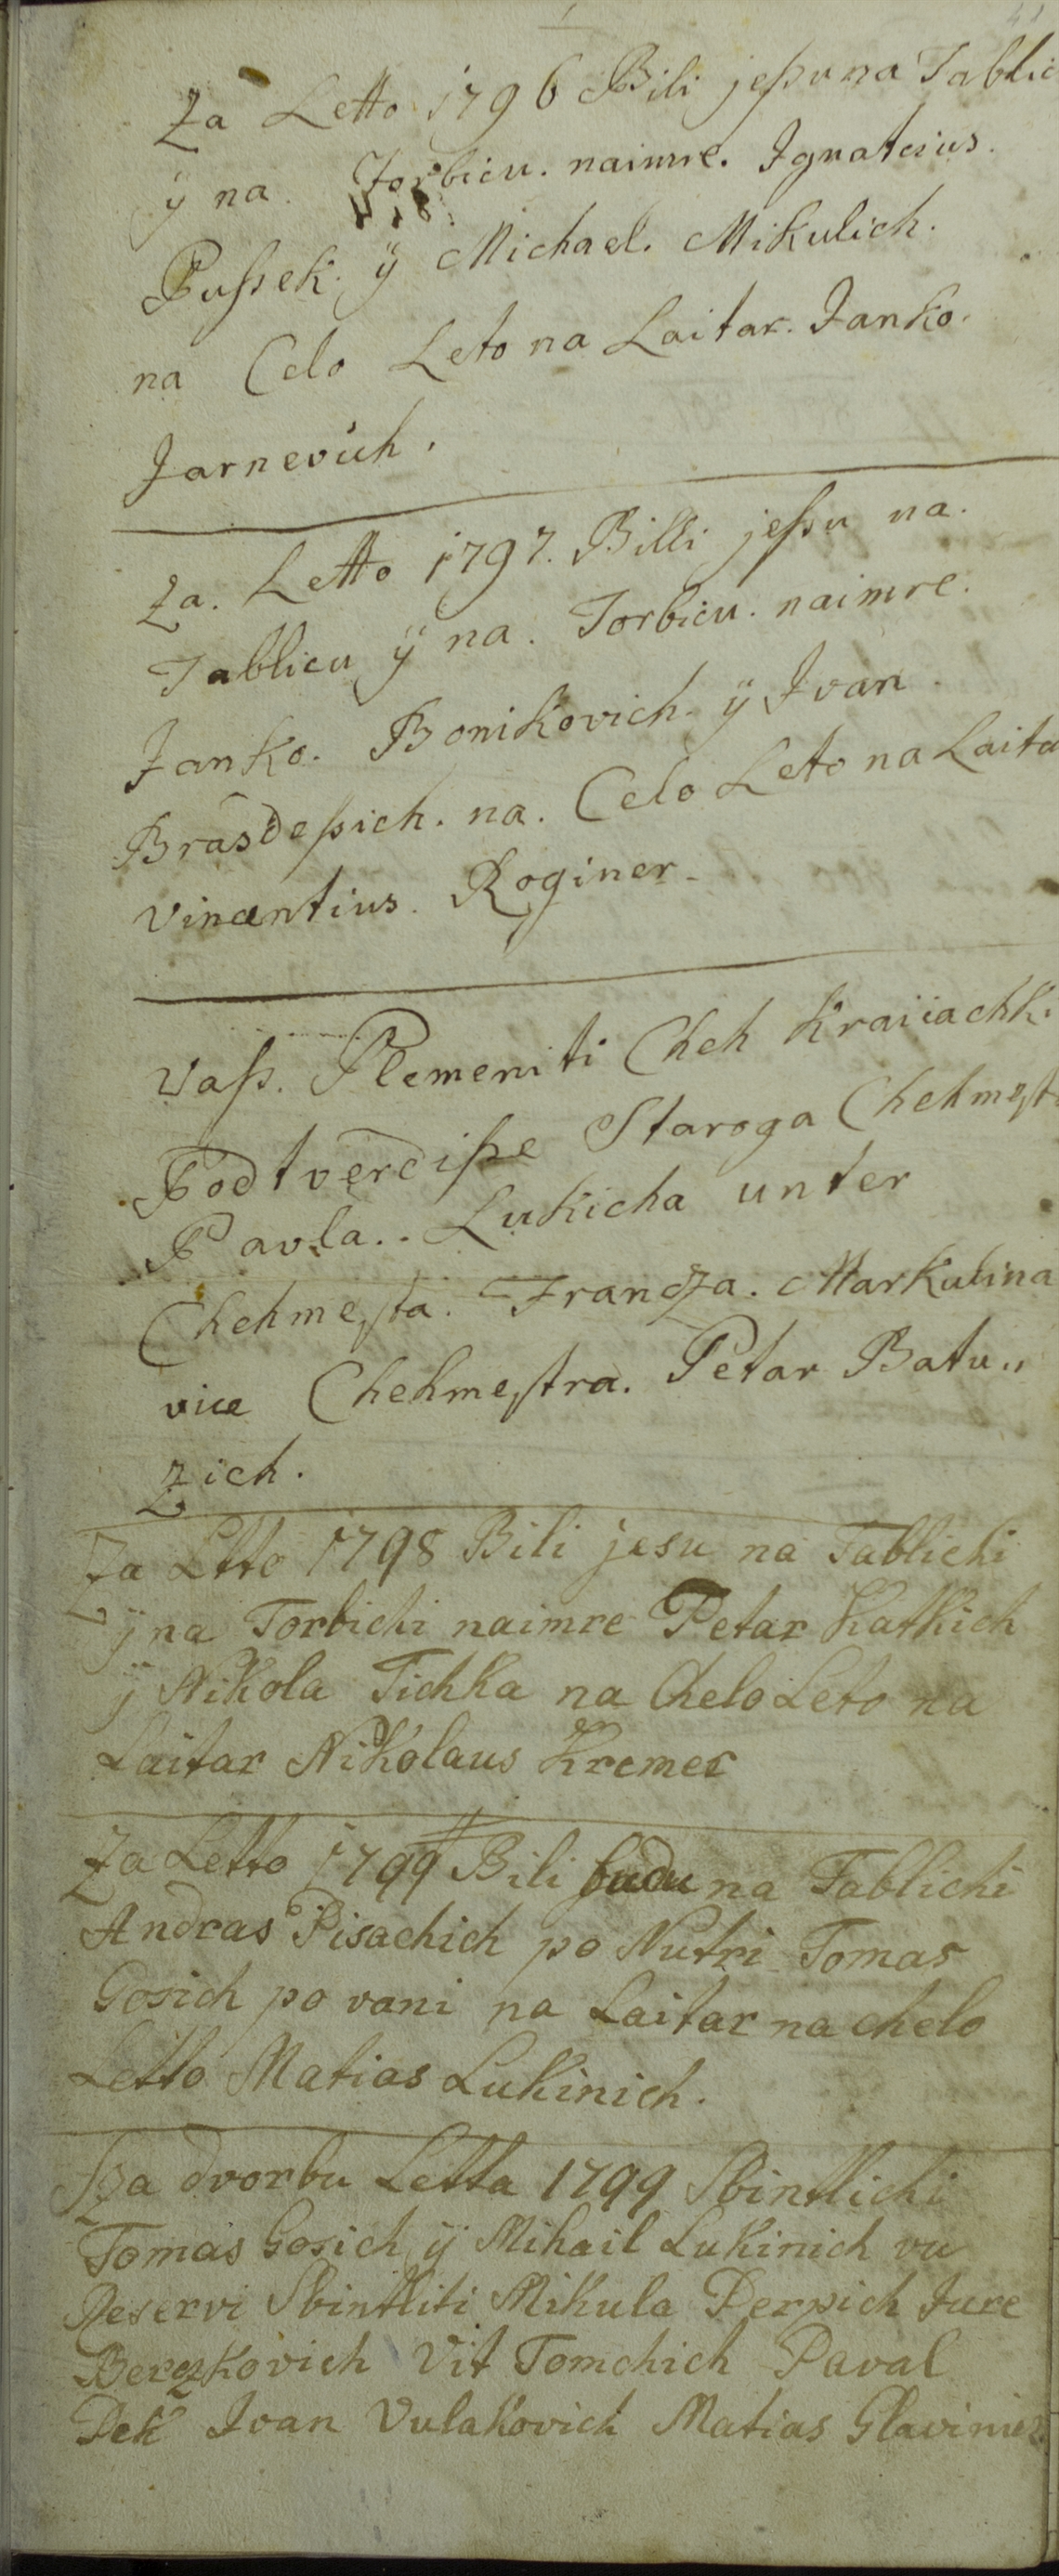 Za Letto 1796 Bili jeſsu na Tablic
ÿ na Torbicu. naimre. Ignatcius.
Puſsek. ÿ Michael. Mikulich.
na Celo Leto na Laitar. Janko.
Jarnevich.
Za. Letto 1797. Billi jeſsu na.
Tablicu ÿ na. Torbicu. naimre.
Janko. Bonikovich. ÿ Ivan.
Brasdeſsich. na. Celo Leto na Laita
Vincentius. Roginer.
Vaſs. Plemeniti Cheh Kraiiachk.
Podtverdiſse Staroga Chehmeſt
Pavla.. Lukicha unter
Chehmeſta. Francza. Markulina
vice Chehmeſtra. Petar Batu„
zich.
Za Letto 1798 Bili jesu na Tablichi
ÿ na Torbichi naimre Petar Katkich
ÿ Nikola Tichka na Chelo Leto na
Laitar Nikolaus Kremer
Za Letto 1799 Bili budu na Tablichi
Andras Pisachich po Nutri Tomas
Gosich po vani na Laitar na chelo
Letto Matias Lukinich.
Sza dvorbu Letta 1799 Sbintlichi
Tomas Gosich ÿ Mihail Lukinich vu
Reservi Sbintliti Mikula Derpich Jure
Berczkovich Vit Tomchich Paval
Pek Ivan Vulakovich Matias Glavinicz